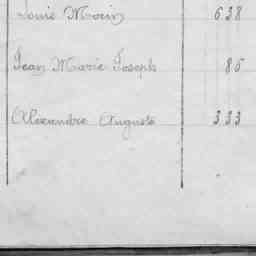 Louis Morin 638
Jean Marie Joseph 85
Alexandre Auguste 333